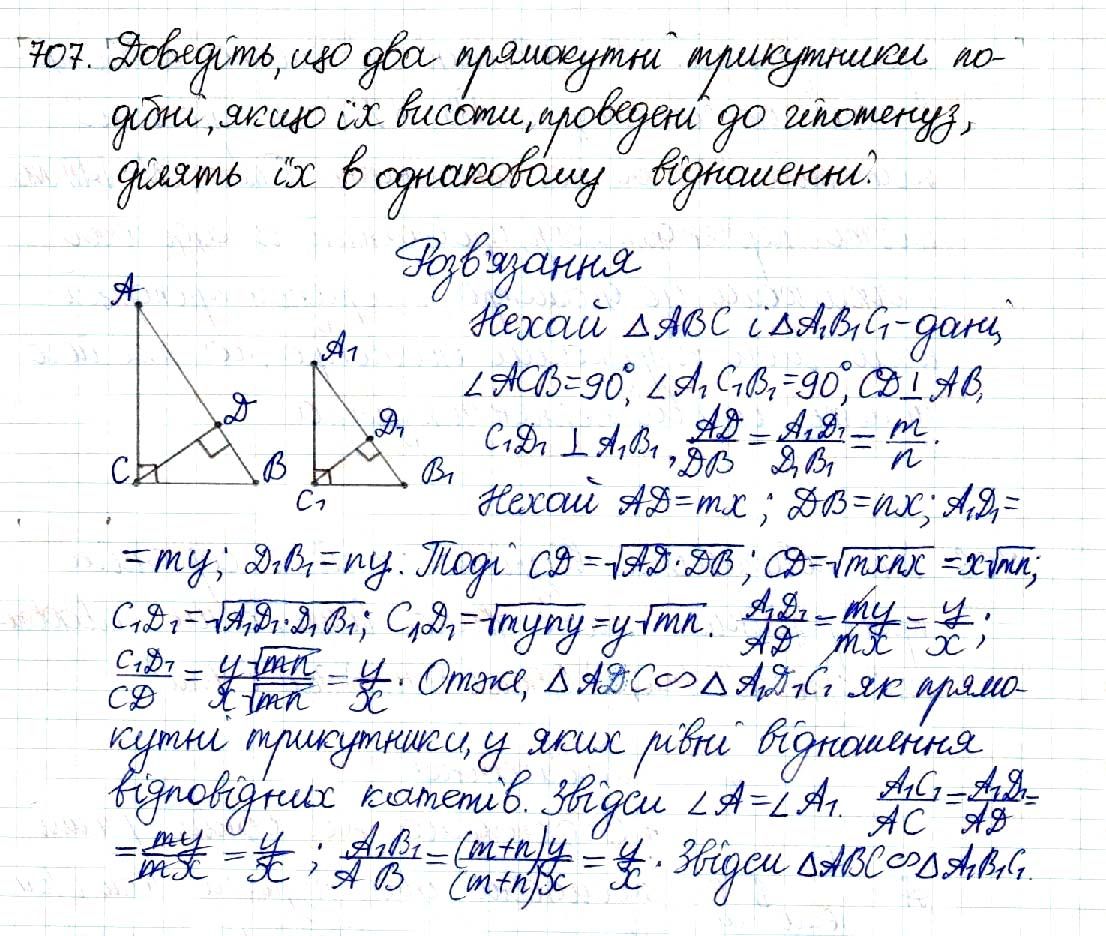 707. Доведіть, що два прямокутні трикутники по-
дібні, якщо їх висоти, проведені до гіпотенуз,
ділять їх в однаковому відношенні.
Розв'язання
A
A₁
D
D₁
C
B
C₁
B₁
Нехай △ABC і △A₁B₁C₁ - дані,
∠ACB=90°, ∠A₁C₁B₁=90°, CD⊥AB,
C₁D₁ ⊥ A₁B₁, AD/DB = A₁D₁/D₁B₁ = m/n.
Нехай AD=mx; DB=nx; A₁D₁=
=my; D₁B₁=ny. Тоді CD=√(AD·DB); CD=√(mxnx)=x√(mn);
C₁D₁=√(A₁D₁·D₁B₁); C₁D₁=√(myny)=y√(mn). A₁D₁/AD = my/mx = y/x;
C₁D₁/CD = y√(mn)/x√(mn) = y/x. Отже, △ADC∽△A₁D₁C₁ як прямо-
кутні трикутники, у яких рівні відношення
відповідних катетів. Звідси ∠A=∠A₁. A₁C₁/AC = A₁D₁/AD =
= my/mx = y/x; A₁B₁/AB = (m+n)y/(m+n)x = y/x. Звідси △ABC∽△A₁B₁C₁.